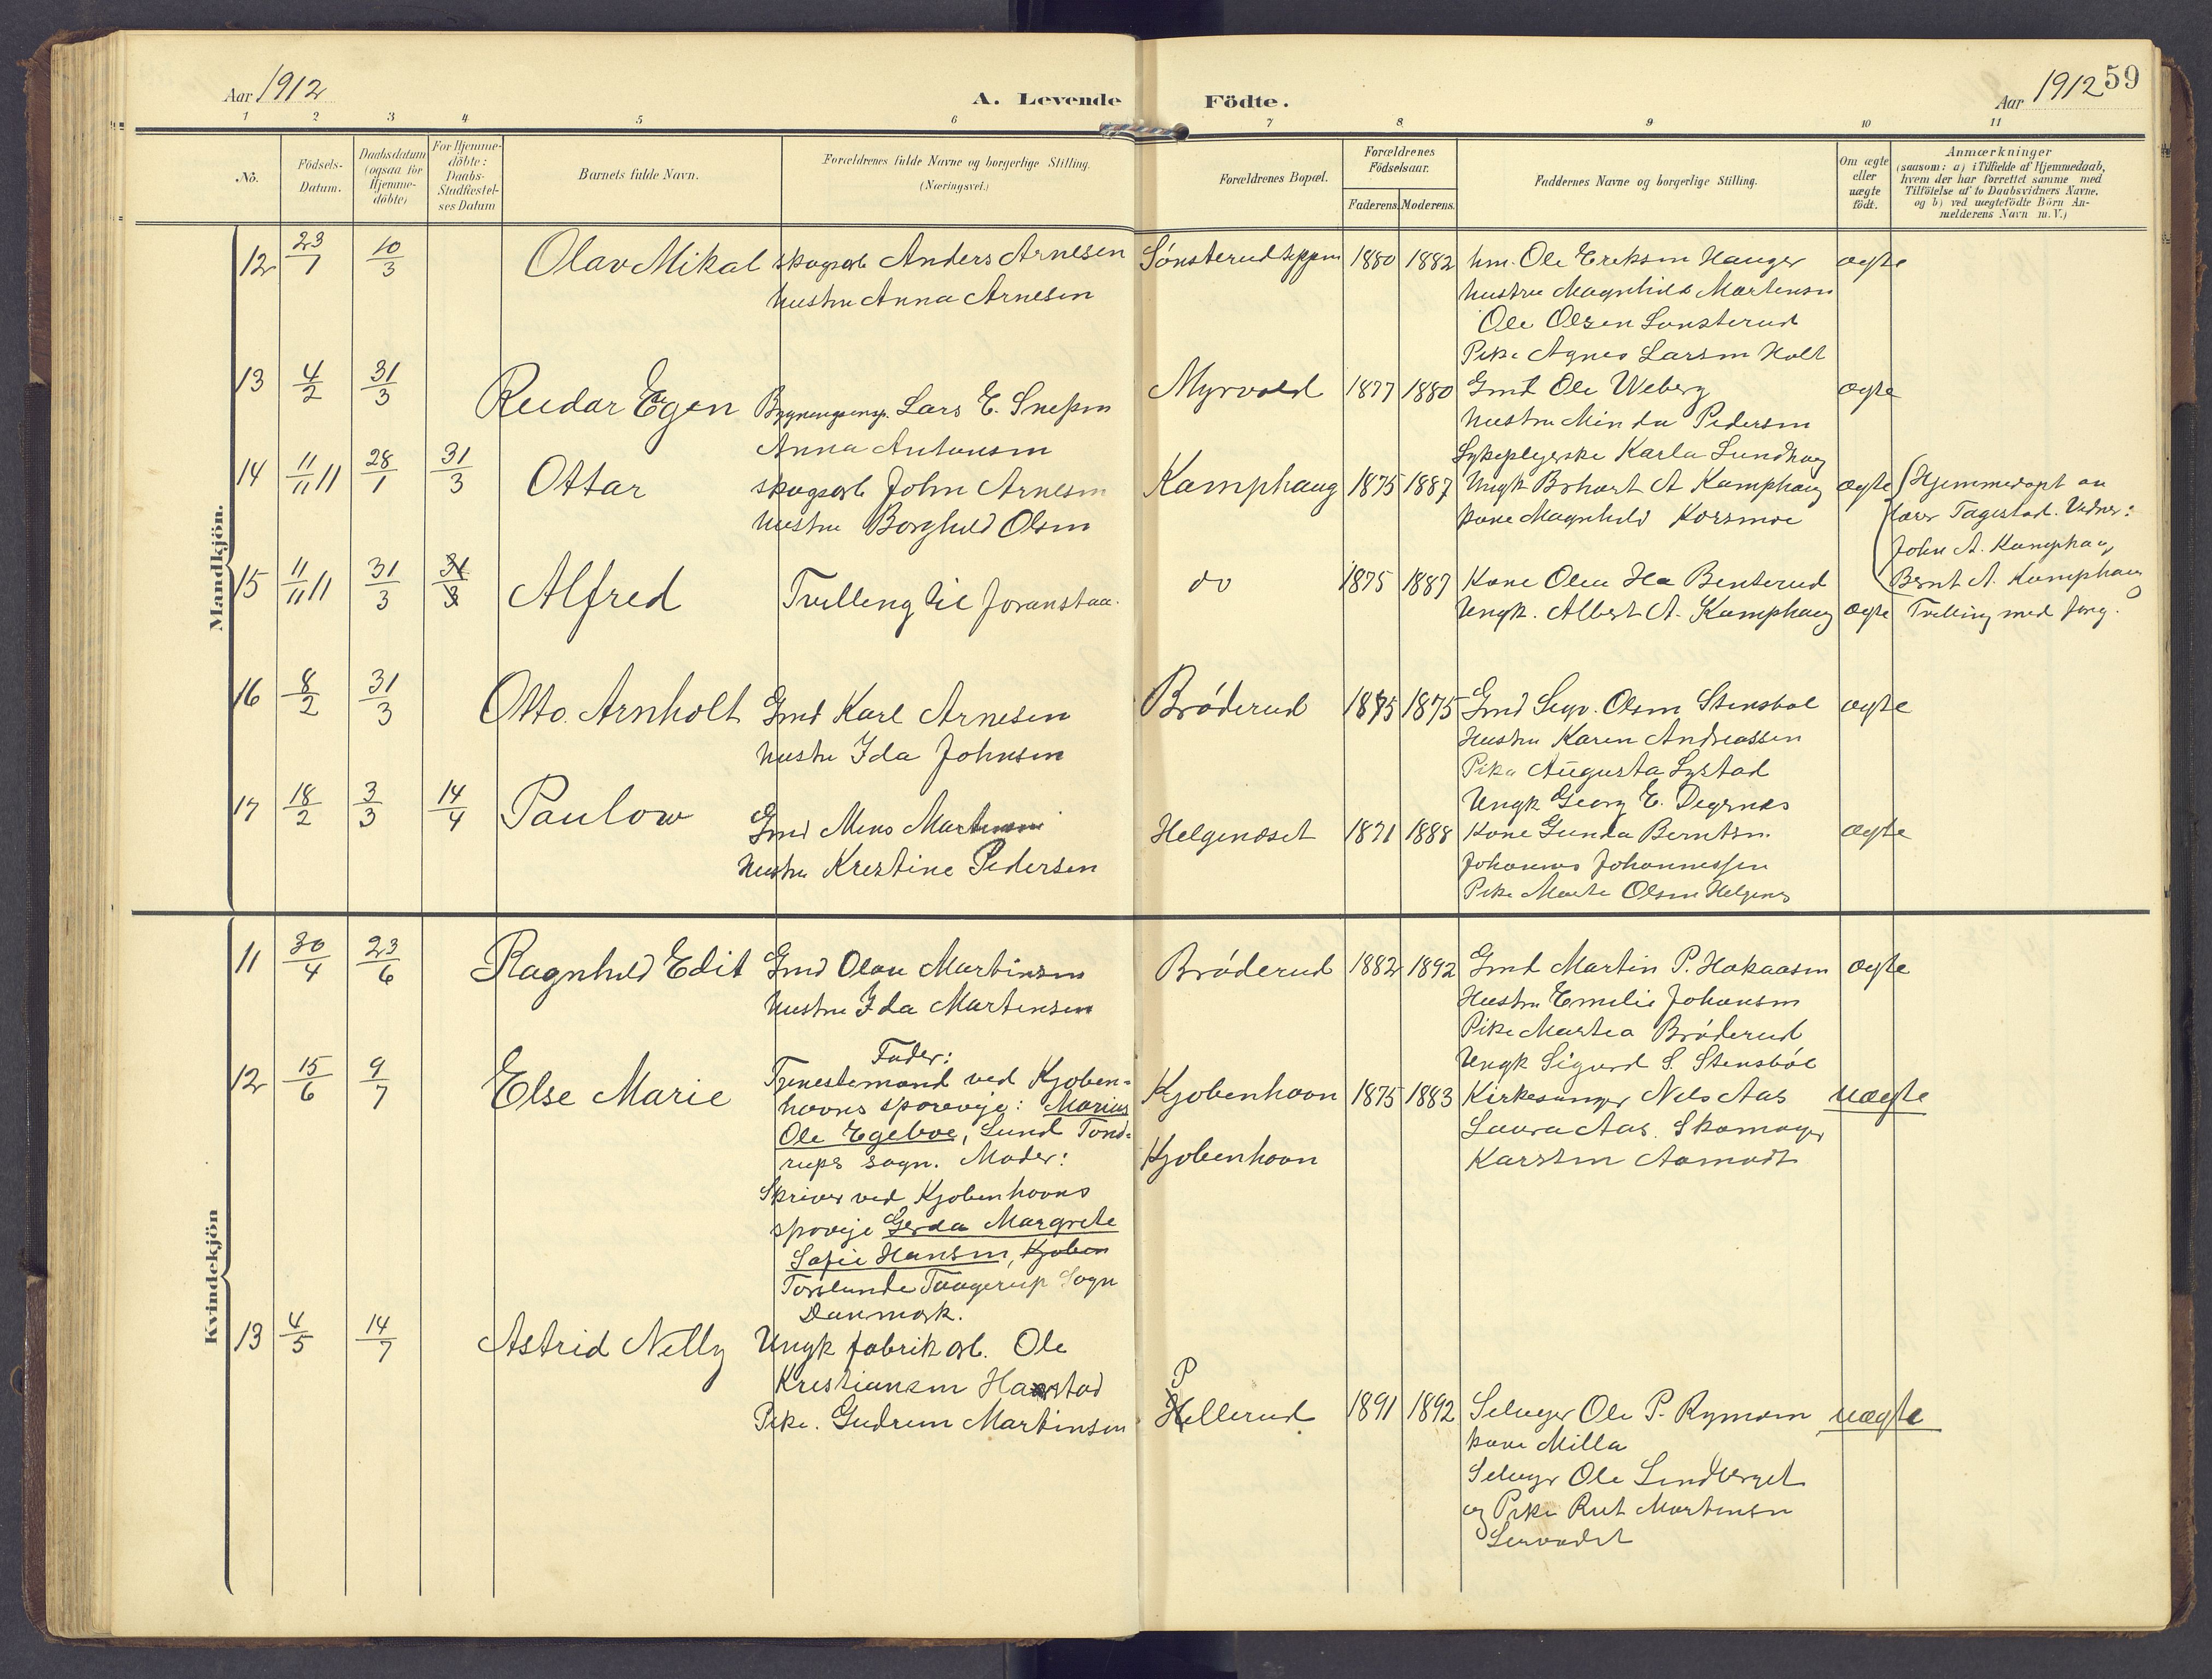 Aar 1912
A. Levende Födte.
Aar 1912 59
1 2 3 4 5 6 7 8. 9 10 11
Nö.
Födsels-Datum.
Daabsdatum (ogsaa for Hjemme-döbte)
For Hjemme-döbte: Daabs-Stadfæstel-ses Datum
Barnets fulde Navn.
Forældrenes fulde Navne og borgerlige Stilling. (Næringsvei.)
Forældrenes Bopæl.
Forældrenes Födselsaar.
Faderens. Moderens.
Faddernes Navne og borgerlige Stilling.
Om ægte eller uægte födt.
Anmærkninger (saasom: a) i Tilfælde af Hjemmedaab, hvem der har forrettet samme med Tilföielse af to Daabsvidners Navne, og b) ved uægtefödte Börn Anmelderens Navn m. V.)
Mandkjön.
12 23/1 10/3 Olav Mikal skogsarb Anders Arnesen Sønsterud 1880 1882 hm. Ole Eriksen Hauger ægte
hustru Anna Arnesen hustru Magnhild Martensen
Ole Olsen Sønsterud
Pike Agnes Larsen Holt
13 4/2 31/3 Reidar Egen Lars E. Myrvold 1877 1880 Gmd Ole Weberg ægte
Anna Antonsen hustru Minda Pedersen
Sykepleierske Karla Lundhaug
14 11/11 11 28/1 31/3 Ottar skogsarb John Arnesen Kamphaug 1875 1887 Ungk A Kamphaug ægte Hjemmedøpt av
hustru Borghild Olsen kone Magnhild Korsmoe lærer Tagestad. Vidner:
John A. Kamphaug
15 11/11 11 31/3 31/3 Alfred Tvilling til foranstaa. do 1875 1887 Kone Olea Benterud Bernt A. Kamphaug
Ungk. Albert A. Kamphaug ægte Tvilling med forg.
16 8/2 31/3 Otto Arnholt Gmd Karl Arnesen Brøderud 1875 1875 Gmd Sigv. Olsen Stensbøl ægte
hustru Ida Johnsen Hustru Karen Andreassen
Pike Augusta Systad
Ungk Georg E. Degrnes
17 18/2 3/3 14/4 Paulow Gmd Mens Martinsen Helgenæset 1871 1888 Kone Gunda Berntsen ægte
hustru Kristine Pedersen Johannes Johannessen
Pike Marte Olsen Helgenes
Kvindekjön
11 30/4 23/6 Ragnhild Edit Gmd Olav Martinsen Brøderud 1882 1892 Gmd Martin P. Hakaasen ægte
hustru Ida Martinsen Hustru Emilie Johansen
Pike Martea Brøderud
Ungk Sigurd S. Stensbøl
12 15/6 9/7 Else Marie Fader:
Tjenestemand ved Kjøben- Kjøbenhavn 1875 1883 Kirkesanger Nels Aas uægte
havns sporveje: Marius Laura Aas. Skomager
Ole Egeboe, Lund Tond- Kjøbenhavn Karsten Aamodt
rups sogn. Moder:
Skriver ved Kjøbenhavns
spoveje Gerda Margrete
Sofie Hansen, Kjøben
Torslunde Taagerup Sogn
Danmark.
13 4/5 14/7 Astrid Nelly Ungk fabrikarb. Ole
Kristiansen Haarstad P
Pike. Gudrun Martinsen Hellerud 1891 1892 Selveger Ole P. uægte
kone Milla
Selveger Ole Lindberget
og Pike Rut Martinsen